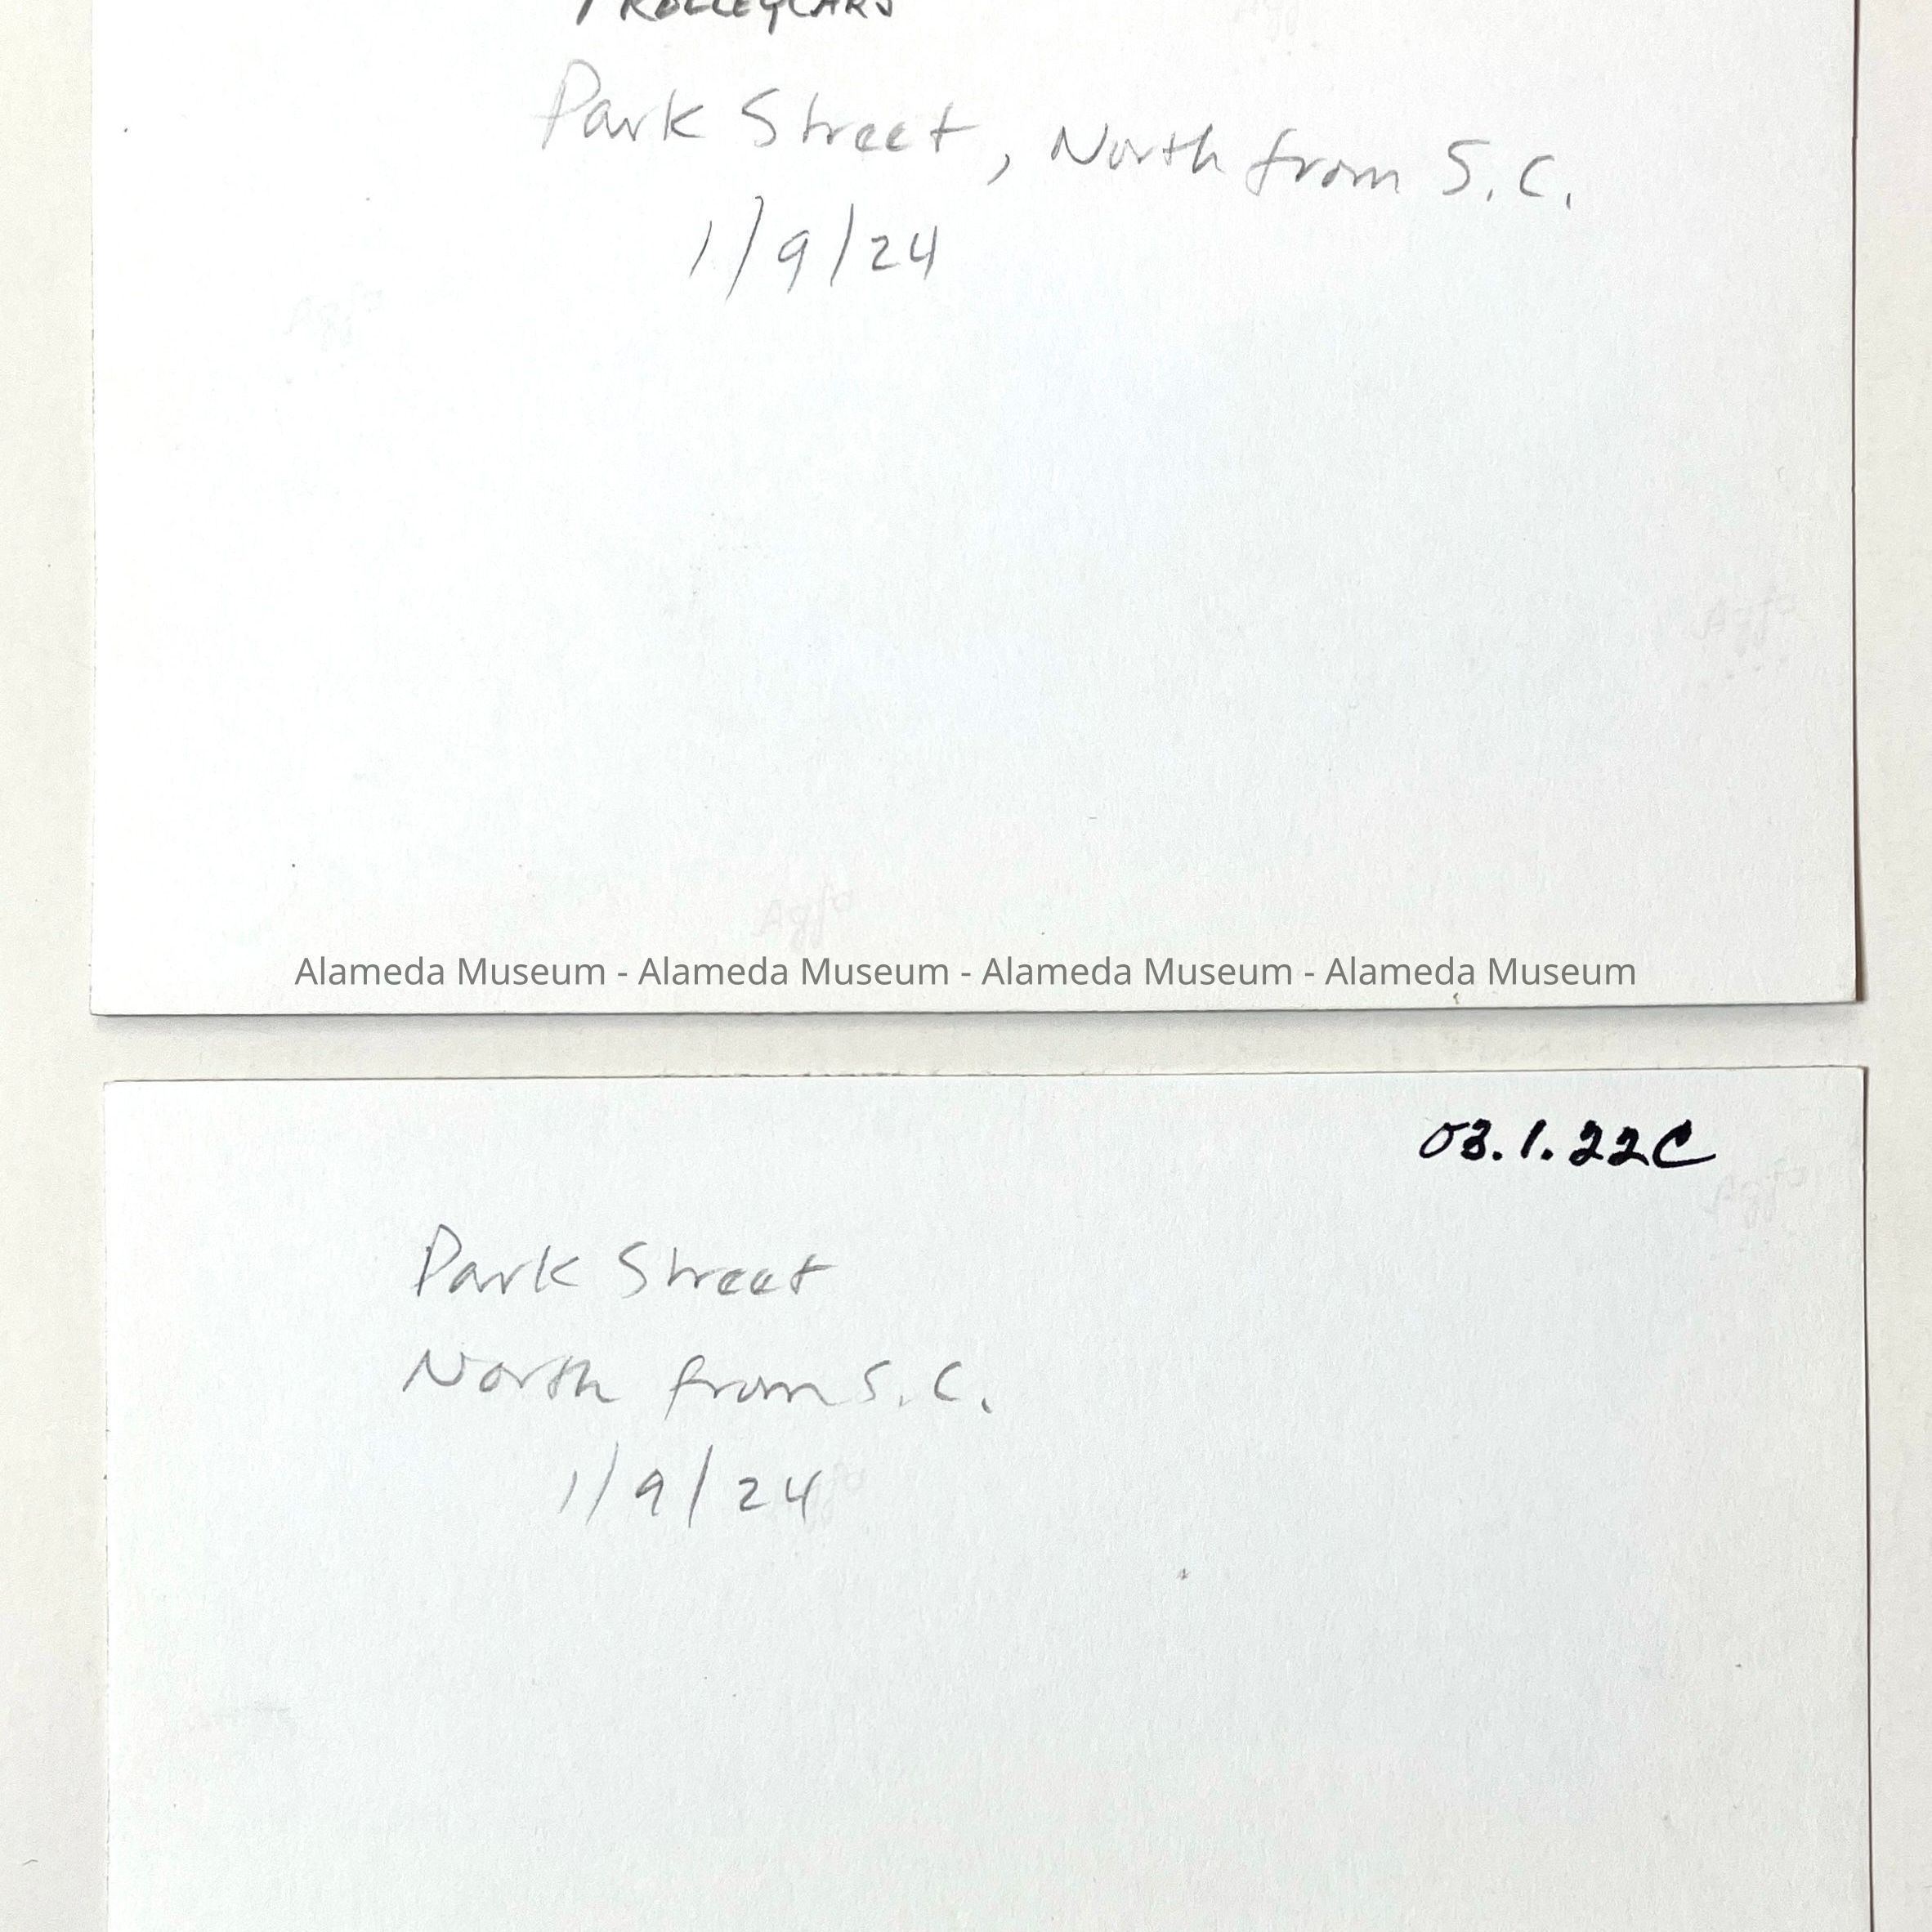 TROLLEYCARS
Park Street, North from S.C.
1/9/24
Alameda Museum - Alameda Museum - Alameda Museum - Alameda Museum
03.1.22C
Park Street
North from S.C.
1/9/24